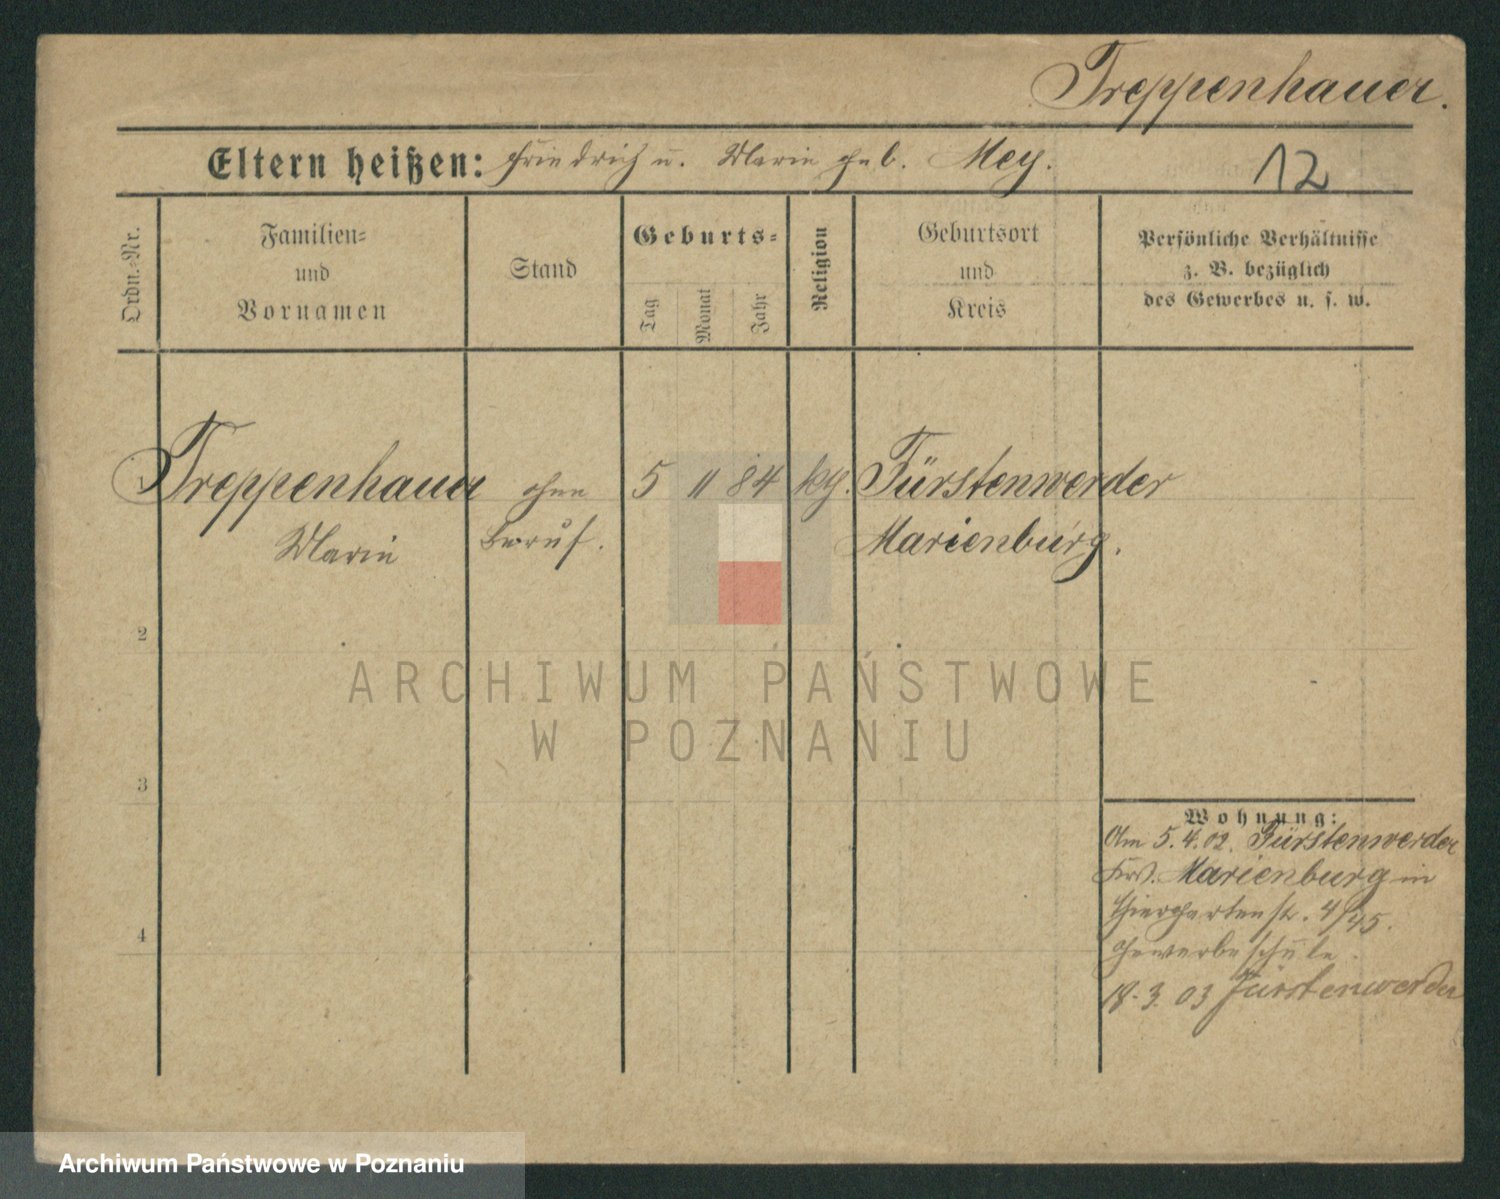 Treppenhauer.
Eltern heißen: Friedrich u. Marie geb. Mey.
12
Ordn.-Nr.
Familien-
und
Vornamen
Stand
Geburts-
Tag
Monat
Jahr
Religion
Geburtsort
und
Kreis
Persönliche Verhältnisse
z. B. bezüglich
des Gewerbes u. s. w.
1 Treppenhauer ohne 5 11 84 Fürstenwerder
Marie Beruf. Marienburg.
2
3
4
Wohnung:
Am 5.4.02. Fürstenwerder
Krs. Marienburg in
Thiergartenstr. 4/45.
Gewerbeschule.
18.3.03 Fürstenwerder
ARCHIWUM PAŃSTWOWE
W POZNANIU
Archiwum Państwowe w Poznaniu